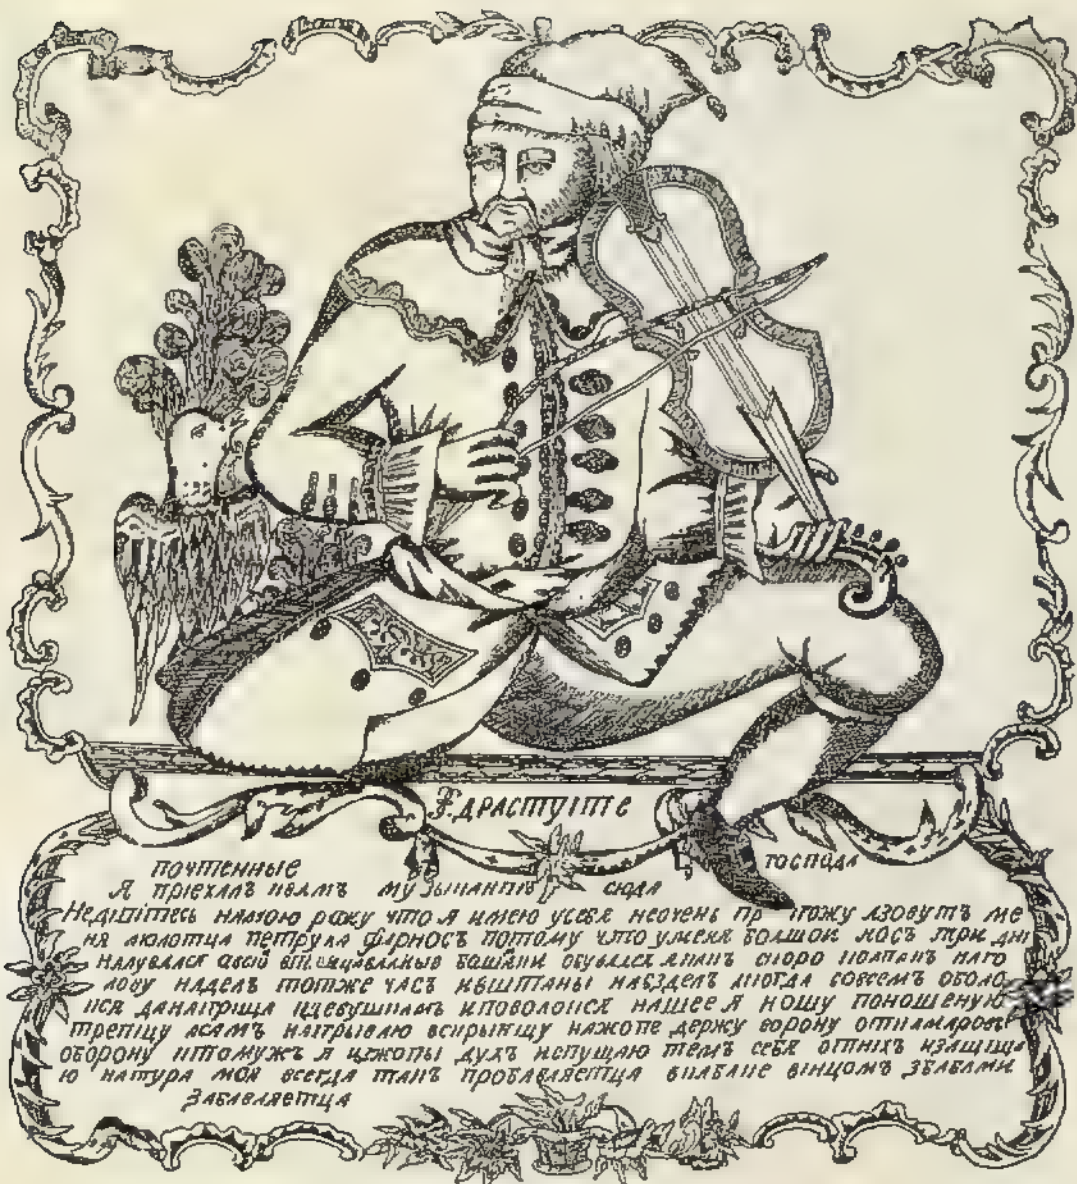 Здраствуите
почтенные господа
Я приехалъ квамъ музыкантъ сюда
Недивитесь намою рожу что я имею усебя неочень пригожу азовутъ ме
ня молотца петруха фарносъ потому что уменя болшои носъ три дни
надувался авои башмаки обувался скоро колпакъ наго
лову наделъ тотже часъ кафтаны насделъ когда совсемъ оболо
кся
нашее я ношу поношеную
тряпицу асамъ наигрываю вскрыпицу нажопе держу ворону откамаровъ
оборону ктомужъ я изжопы духъ испущаю темъ себя отнихъ изащища
ю натура моя всегда такъ пробавляетца вкабаке винцомъ збабами
забавляетца